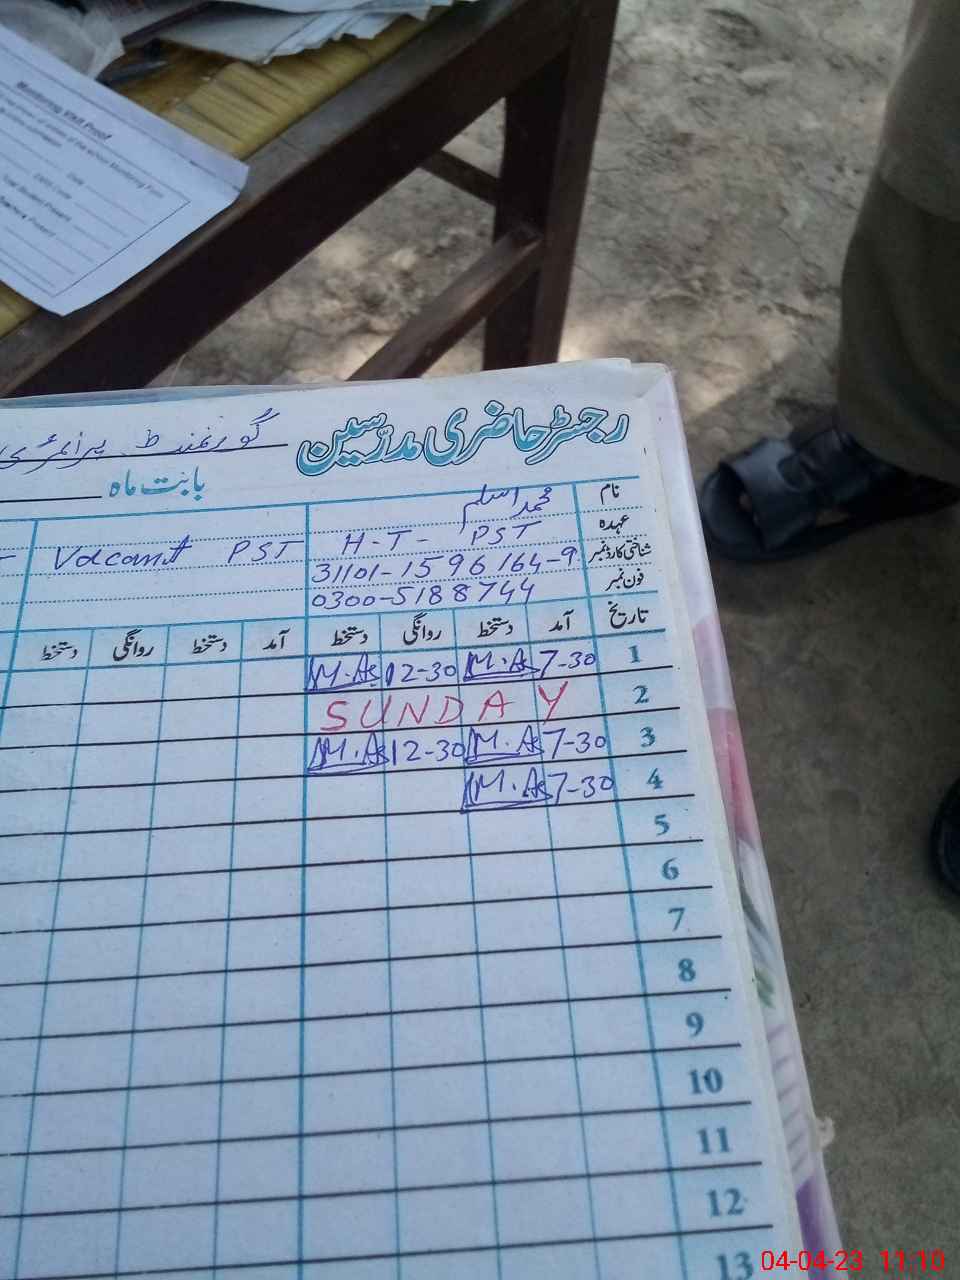 Monitoring Visit Proof
Date
EMIS Code
رجسٹر حاضری مدرسین
گورنمنٹ پرائمری
بابت ماہ
نام محمد اسلم
عہدہ H-T- PST Vacant PST
شناختی کارڈ نمبر 31101-1596164-9
فون نمبر 0300-5188744
تاریخ آمد دستخط روانگی دستخط آمد دستخط روانگی دستخط
1 7-30 M.As 12-30 M.As
2 SUNDAY
3 7-30 M.As 12-30 M.As
4 7-30 M.As
5
6
7
8
9
10
11
12
13
04-04-23 11:10